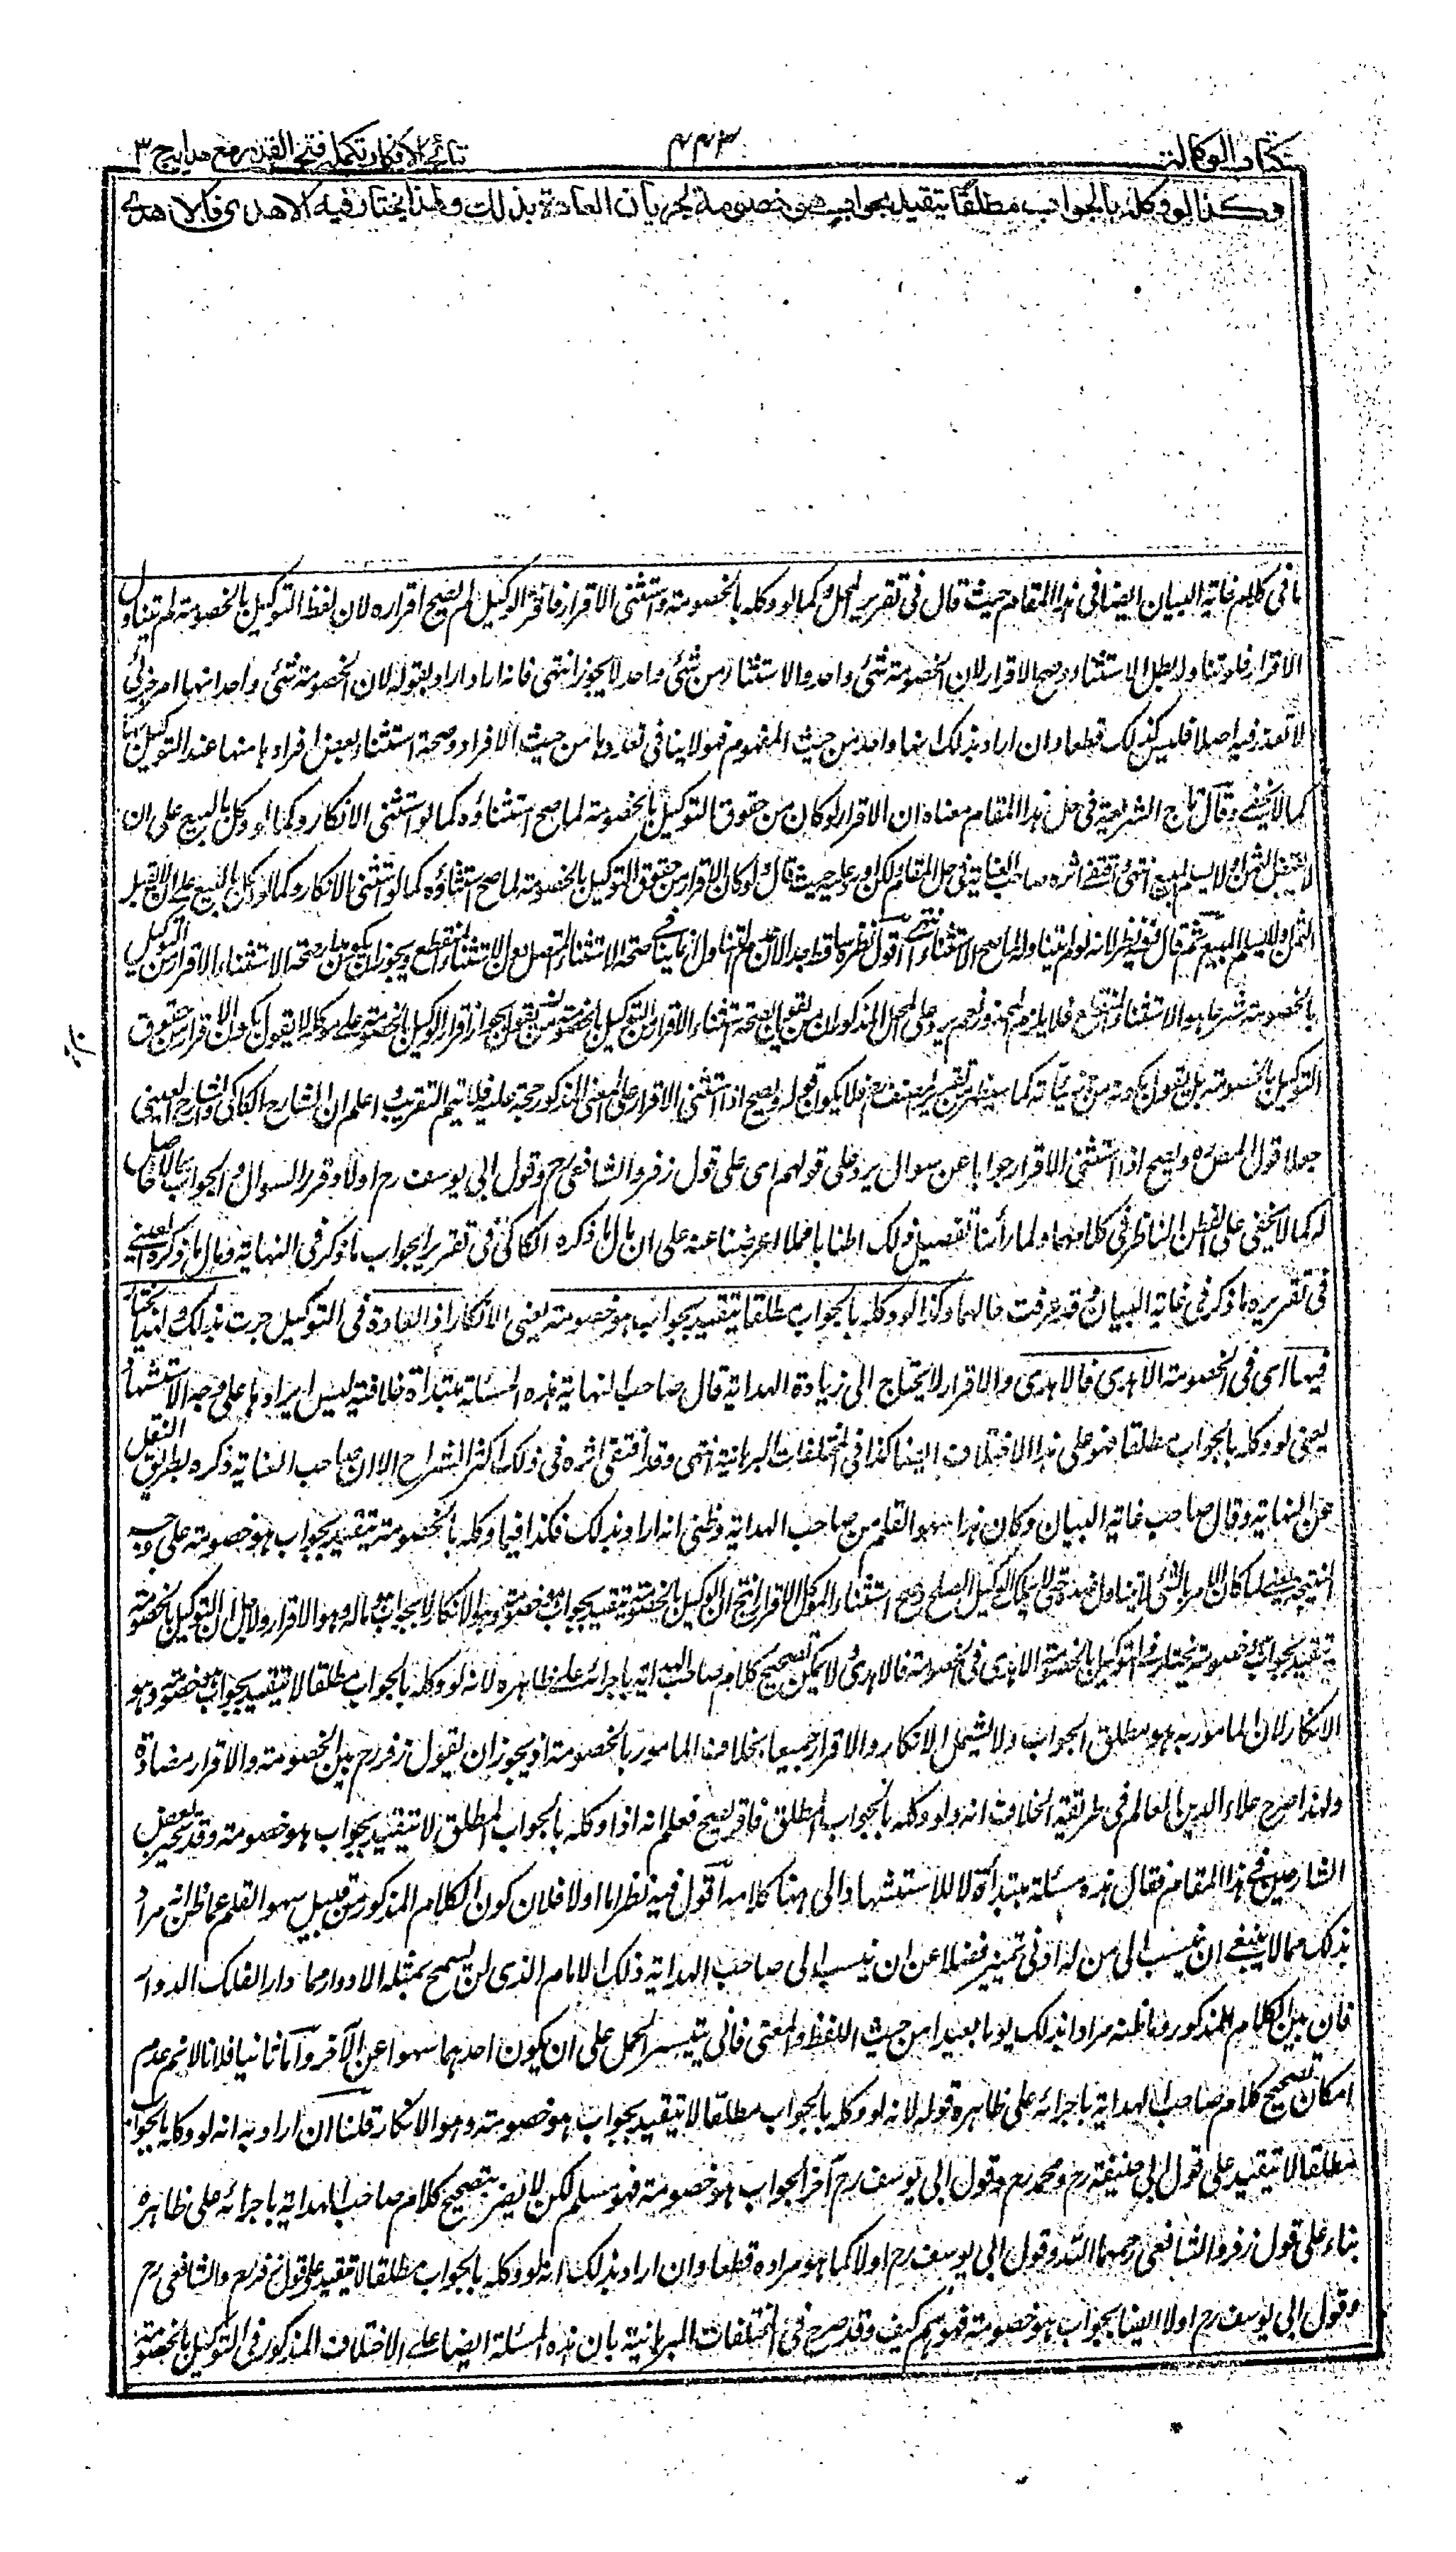 كتاب الوكالة
٤٤٣
نتائج الافكار تكملة فتح القدير مع هدايه ج ٣
وكذا لو وكله بالجواب مطلقا يتقيد بجواب هو خصومة لجريان العادة بذلك ولهذا يختار فيه الاهدى فالاهدى
ما فى كلام غاية البيان ايضا فى هذا المقام حيث قال فى تقرير المحل وكما لو وكله بالخصومة واستثنى الاقرار فاقر الوكيل لم يصح اقراره لان لفظ التوكيل بالخصومة لم يتناول
الاقرار فلو تناوله لبطل الاستثناء وصح الاقرار لان الخصومة شئ واحد والاستثناء من شئ واحد لا يجوز انتهى فانه ان اراد بقوله لان الخصومة شئ واحد انها امر جزئى
لا تعدد فيه اصلا فليس كذلك قطعا وان اراد بذلك انها واحد من حيث المفهوم فهو لا ينافى تعددها من حيث الافراد وصحة استثناء بعض افرادها منها عند التوكيل بها
كما لا يخفى وقال تاج الشريعة فى حل هذا المقام معناه ان الاقرار لو كان من حقوق التوكيل بالخصومة لما صح استثناؤه كما لو استثنى الانكار وكما لو وكل بالبيع على ان
لا يقبض الثمن او لا يسلم المبيع انتهى واقتفى اثره صاحب العناية فى حل المقام ولكن اورد عليه حيث قال ولو كان الاقرار من حقوق التوكيل بالخصومة لما صح استثناؤه كما لو استثنى الانكار وكما لو وكل بالبيع على ان لا يقبض
الثمن او لا يسلم المبيع ثم قال فيه نظر لانه لو لم يتناوله لما صح الاستثناء انتهى اقول نظره ساقط جدا لان عدم التناول انما ينافى صحة الاستثناء المتصل دون الاستثناء المنقطع ويجوز ان يكون مدار صحة الاستثناء الاقرار من التوكيل
بالخصومة شرعا هو الاستثناء المنقطع فلا يلزم المحذور نعم يرد على المحل المذكور ان من يقول بصحة استثناء الاقرار من التوكيل بالخصومة ومن يقول بجواز اقرار الوكيل بالخصومة على موكله لا يقول بكون الاقرار من حقوق
التوكيل بالخصومة بل يقول بكونه من جزئياته كما سيظهر من تقرير المصنف رح فلا يكون قوله ويصح اذا استثنى الاقرار على المعنى المذكور حجة عليه فلا يتم التقريب واعلم ان الشارح الكاكى والشارح العينى
جعلا قول المصنف ره ويصح اذا استثنى الاقرار جوابا عن سوال يرد على قولهم اى على قول زفر والشافعى رح وقول ابى يوسف رح اولا وقررا السوال والجواب بما لا حاصل
له كما لا يخفى على الفطن الناظر فى كلامهما ولما رأينا تفصيل ذلك اطنابا مملا اعرضنا عنه على ان مآل ما ذكره الكاكى فى تقرير الجواب ما ذكر فى النهاية ومآل ما ذكره العينى
فى تقريره ما ذكر فى غاية البيان وقد عرفت حالهما وكذا لو وكله بالجواب مطلقا يتقيد بجواب هو خصومة يعنى الانكار اذ العادة فى التوكيل جرت بذلك ولهذا يختار
فيها اى فى الخصومة الاهدى فالاهدى والاقرار لا يحتاج الى زيادة الهداية قال صاحب النهاية هذه المسئلة مبتدأة خلافية ليس ايرادها على وجه الاستشهاد
يعنى لو وكله بالجواب مطلقا فهو على هذا الاختلاف ايضا كذا فى المختلفات البرهانية انتهى وقد اقتفى اثره فى ذلك اكثر الشراح الا ان صاحب العناية ذكره بطريق النقل
عن النهاية وقال صاحب غاية البيان وكان هذا سهو القلم من صاحب الهداية وظنى انه اراد بذلك فكذا فيما وكله بالخصومة يتقيد بجواب هو خصومة على وجه
النتيجة يعنى لما كان الامر بالشئ لا يتناول ضده حتى لا يملك الوكيل الصلح وصح استثناء الموكل الاقرار انتج ان الوكيل بالخصومة يتقيد بجواب هو خصومة وهو الانكار لا بجواب هو مسالمة وهو الاقرار ولاجل ان التوكيل بالخصومة
يتقيد بجواب هو خصومة يختار فى التوكيل بالخصومة الاهدى فى الخصومة فالاهدى ولا يمكن تصحيح كلام صاحب الهداية باجرائه على ظاهره لانه لو وكله بالجواب مطلقا لا يتقيد بجواب هو خصومة وهو
الانكار لان المامور به هو مطلق الجواب وذا يشمل الانكار والاقرار جميعا بخلاف المامور بالخصومة اذ يجوز ان يقول زفر رح بين الخصومة والاقرار مضادة
ولهذا صرح علاء الدين العالم فى طريقة الخلاف انه ولو وكله بالجواب المطلق فاقر يصح فعلم انه اذا وكله بالجواب المطلق لا يتقيد بجواب هو خصومة وقد تحير بعض
الشارحين فى هذا المقام فقال هذه مسئلة مبتدأة لا للاستشهاد الى هنا كلامه اقول فيه نظر اما اولا فلان كون الكلام المذكور من قبيل سهو القلم عما ظن انه مراد
بذلك مما لا ينبغى ان ينسب الى من له ادنى تميز فضلا عن ان ينسب الى صاحب الهداية ذلك الامام الذى لن تسمح بمثله الادوار ما دار الفلك الدوار
فان بين الكلام المذكور وما ظنه مرادا بذلك بونا بعيدا من حيث اللفظ والمعنى فانى يتيسر الحمل على ان يكون احدهما سهوا عن الآخر واما ثانيا فلانا لا نسلم عدم
امكان تصحيح كلام صاحب الهداية باجرائه على ظاهره قوله لانه لو وكله بالجواب مطلقا لا يتقيد بجواب هو خصومة وهو الانكار قلنا ان اراد به انه لو وكله بالجواب
مطلقا لا يتقيد على قول ابى حنيفة رح ومحمد رح وقول ابى يوسف رح آخرا بجواب هو خصومة فهو مسلم لكن لا يضر بتصحيح كلام صاحب الهداية باجرائه على ظاهره
بناء على قول زفر والشافعى رحمهما الله وقول ابى يوسف رح اولا كما هو مراده قطعا وان اراد بذلك انه لو وكله بالجواب مطلقا لا يتقيد على قول زفر رح والشافعى رح
وقول ابى يوسف رح اولا ايضا بجواب هو خصومة فهو وهم كيف وقد صرح فى المختلفات البرهانية بان هذه المسئلة ايضا على الاختلاف المذكور فى التوكيل بالخصومة